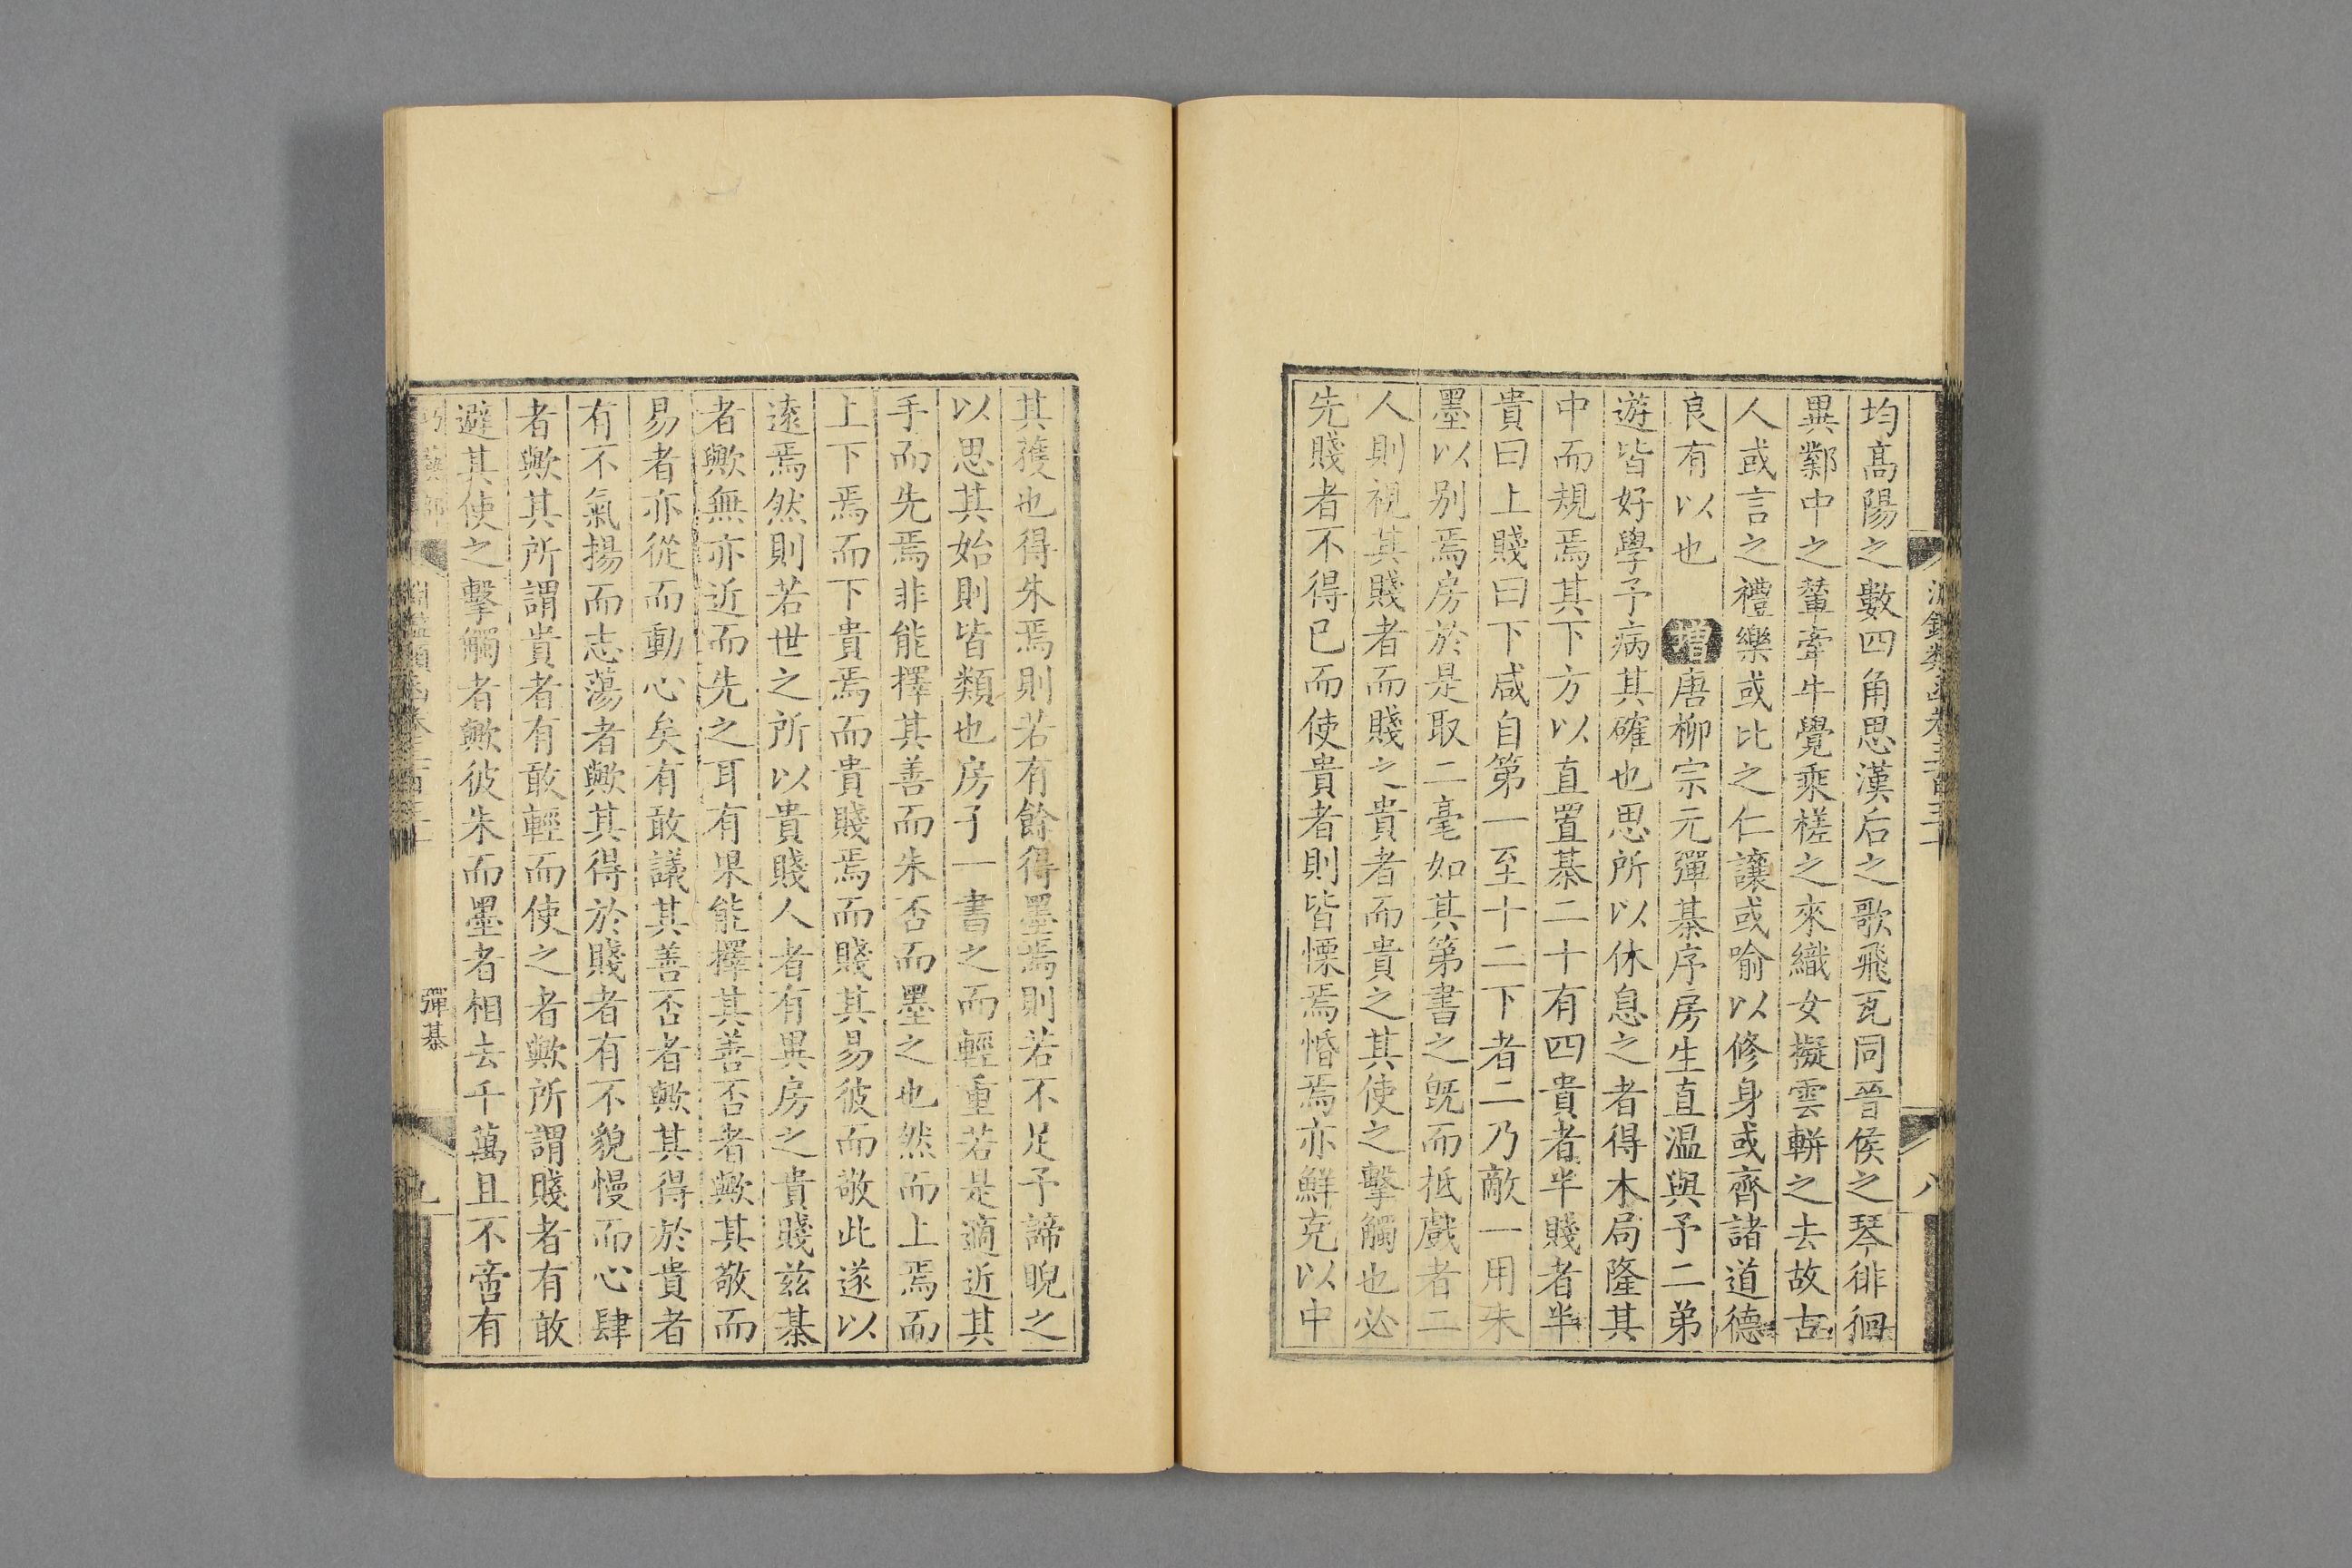 淵鑑類函卷三百三十
八
均高陽之數四角思漢后之歌飛瓦同晉侯之琴徘徊
異鄴中之輦牽牛覺乘槎之來織女擬雲軿之去故古
人或言之禮樂或比之仁讓或喻以修身或齊諸道德
良有以也 增唐柳宗元彈棊序房生直温與予二弟
遊皆好學予病其確也思所以休息之者得木局隆其
中而規焉其下方以直置棊二十有四貴者半賤者半
貴曰上賤曰下咸自第一至十二下者二乃敵一用朱
墨以别焉房於是取二毫如其第書之既而抵戲者二
人則視其賤者而賤之貴者而貴之其使之擊觸也必
先賤者不得已而使貴者則皆慄焉惛焉亦鮮克以中
其獲也得朱焉則若有餘得墨焉則若不足予諦睨之
以思其始則皆類也房子一書之而輕重若是適近其
手而先焉非能擇其善而朱否而墨之也然而上焉而
上下焉而下貴焉而貴賤焉而賤其易彼而敬此遂以
遠焉然則若世之所以貴賤人者有異房之貴賤兹棊
者歟無亦近而先之耳有果能擇其善否者歟其敬而
易者亦從而動心矣有敢議其善否者歟其得於貴者
有不氣揚而志蕩者歟其得於賤者有不貌慢而心肆
者歟其所謂貴者有敢輕而使之者歟所謂賤者有敢
避其使之擊觸者歟彼朱而墨者相去千萬且不啻有
彈棊
九